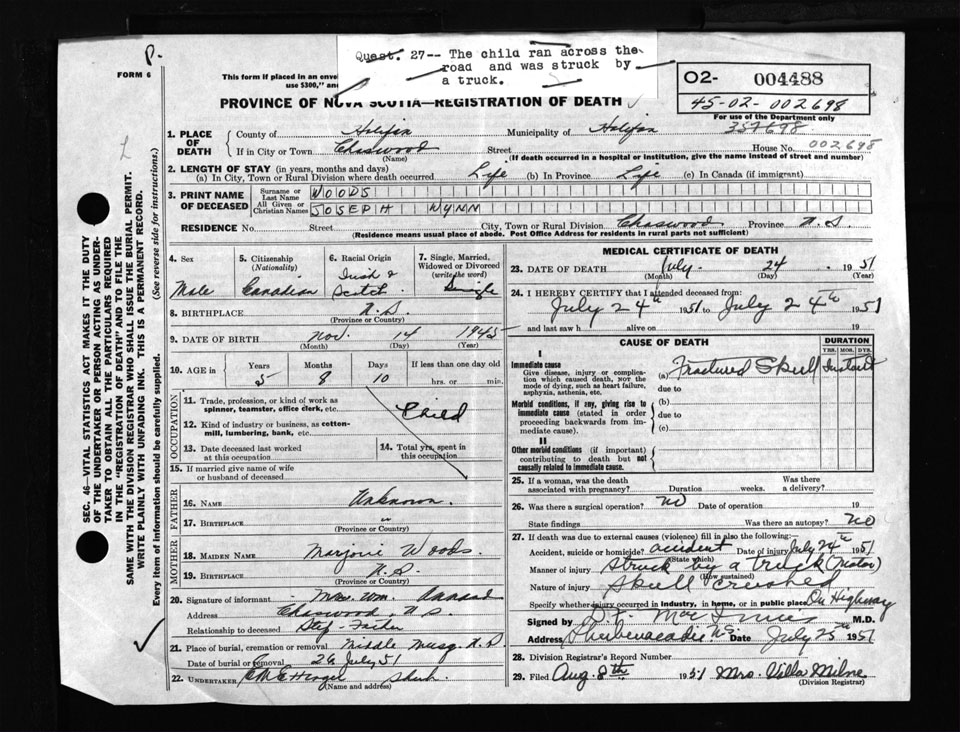 P.
FORM 6
Quest. 27-- The child ran across the
road and was struck by
a truck.
This form if placed in an enve
use $300," and
O2- 004488
45-02-002698
PROVINCE OF NOVA SCOTIA—REGISTRATION OF DEATH
For use of the Department only
357698
1. PLACE OF DEATH
County of Halifax Municipality of Halifax
If in City or Town Chaswood Street House No. 002698
(Name) (If death occurred in a hospital or institution, give the name instead of street and number)
2. LENGTH OF STAY (in years, months and days)
(a) In City, Town or Rural Division where death occurred Life (b) In Province Life (c) In Canada (if immigrant)
3. PRINT NAME OF DECEASED
Surname or Last Name WOODS
All Given or Christian Names JOSEPH WYNN
RESIDENCE No. Street City, Town or Rural Division Chaswood Province N.S.
(Residence means usual place of abode. Post Office Address for residents in rural parts not sufficient)
4. Sex Male
5. Citizenship (Nationality) Canadian
6. Racial Origin Irish & Scotch
7. Single, Married, Widowed or Divorced (write the word) Single
8. BIRTHPLACE N.S.
(Province or Country)
9. DATE OF BIRTH Nov. 14 1945
(Month) (Day) (Year)
10. AGE in Years 5 Months 8 Days 10 If less than one day old
hrs. or min.
OCCUPATION
11. Trade, profession, or kind of work as
spinner, teamster, office clerk, etc. Child
12. Kind of industry or business, as cotton-
mill, lumbering, bank, etc.
13. Date deceased last worked at this occupation
14. Total yrs. spent in this occupation
15. If married give name of wife
or husband of deceased
FATHER
16. NAME Unknown.
17. BIRTHPLACE "
(Province or Country)
MOTHER
18. MAIDEN NAME Marjorie Woods.
19. BIRTHPLACE N.S.
20. Signature of informant Mrs. Wm.
Address Chaswood, N.S.
Relationship to deceased Step-Father
21. Place of burial, cremation or removal Middle Musq. N.S
Date of burial or removal 26 July 51
22. UNDERTAKER Shub.
(Name and address)
MEDICAL CERTIFICATE OF DEATH
23. DATE OF DEATH July 24 1951
(Month) (Day) (Year)
24. I HEREBY CERTIFY that I attended deceased from:
July 24th 1951 to July 24th 1951
and last saw h alive on 19
CAUSE OF DEATH DURATION
YRS. MOS. DYS.
I
Immediate cause
Give disease, injury or complica-
tion which caused death, not the
mode of dying, such as heart failure,
asphyxia, asthenia, etc.
(a) Fractured Skull Instant
due to
Morbid conditions, if any, giving rise to
immediate cause (stated in order
proceeding backwards from im-
mediate cause).
(b)
due to
(c)
II
Other morbid conditions (if important)
contributing to death but not
causally related to immediate cause.
25. If a woman, was the death
associated with pregnancy? Duration Weeks Was there
a delivery?
26. Was there a surgical operation? No Date of operation 19
State findings Was there an autopsy? No
27. If death was due to external causes (violence) fill in also the following:—
Accident, suicide or homicide? accident Date of injury July 24th 1951
(State which)
Manner of injury Struck by a truck (Motor)
(How sustained)
Nature of injury Skull crushed
Specify whether injury occurred in industry, in home, or in public place On Highway
Signed by D.F. MacInnis M.D.
Address Shubenacadie N.S. Date July 25th 1951
28. Division Registrar's Record Number
29. Filed Aug. 8th 1951 Mrs. Villa Milne
(Division Registrar)
SEC. 46—VITAL STATISTICS ACT MAKES IT THE DUTY
OF THE UNDERTAKER OR PERSON ACTING AS UNDER-
TAKER TO OBTAIN ALL THE PARTICULARS REQUIRED
IN THE "REGISTRATION OF DEATH" AND TO FILE THE
SAME WITH THE DIVISION REGISTRAR WHO SHALL ISSUE THE BURIAL PERMIT.
WRITE PLAINLY WITH UNFADING INK. THIS IS A PERMANENT RECORD.
Every item of information should be carefully supplied. (See reverse side for instructions.)